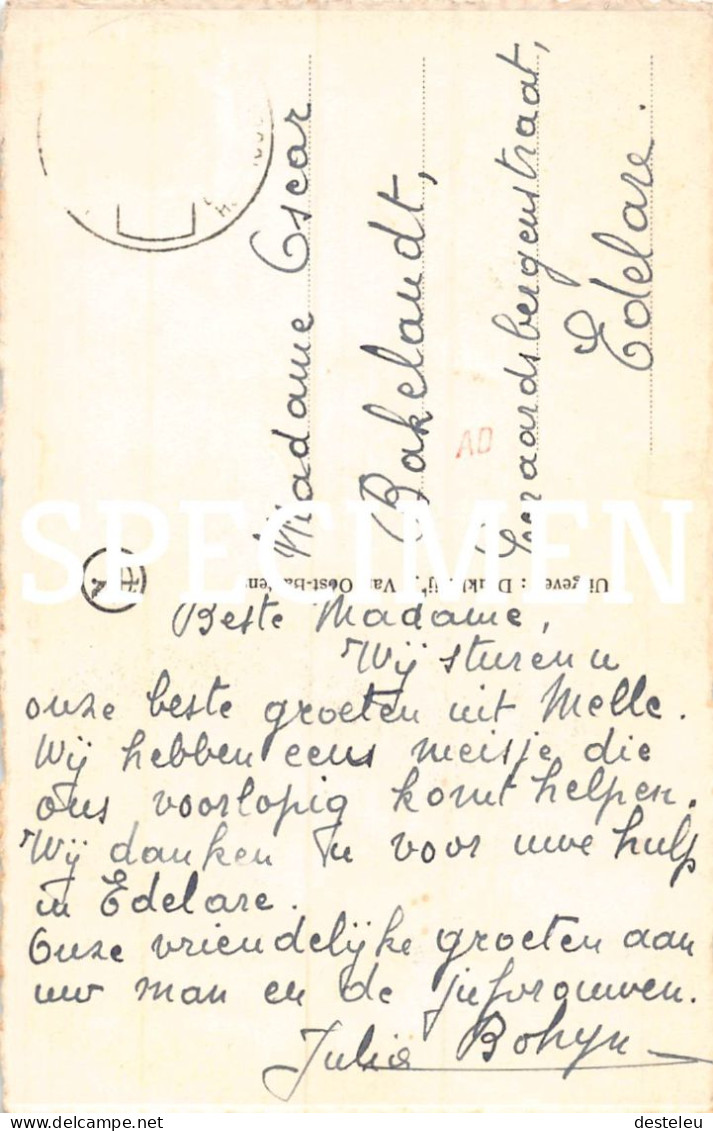 Madame Oscar
Bakelandt,
Geeraardsbergenstraat,
Edelare.
AD
SPECIMEN
Uitgever: Drukkerij Van Oost-
A
Beste Madame,
Wij sturen u
onze beste groeten uit Melle.
Wij hebben eens meisje die
ons voorlopig komt helpen.
Wij danken u voor uwe hulp
in Edelare.
Onze vriendelijke groeten aan
uw man en de jufvrouwen.
Julia Bohyn
desteleu